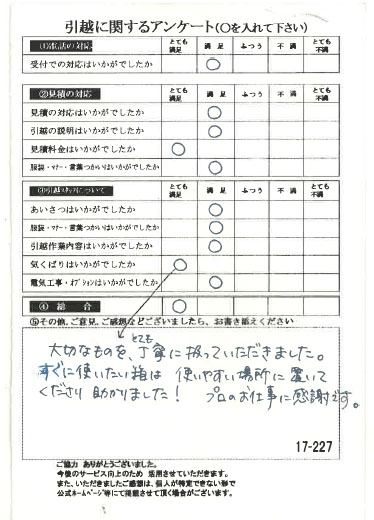 引越に関するアンケート(○を入れて下さい)
①電話の対応 とても満足 満足 ふつう 不満 とても不満
受付での対応はいかがでしたか ○
②見積の対応 とても満足 満足 ふつう 不満 とても不満
見積の対応はいかがでしたか ○
引越の説明はいかがでしたか ○
見積料金はいかがでしたか ○
服装・マナー・言葉づかいはいかがでしたか ○
③引越スタッフについて とても満足 満足 ふつう 不満 とても不満
あいさつはいかがでしたか ○
服装・マナー・言葉づかいはいかがでしたか ○
引越作業内容はいかがでしたか ○
気くばりはいかがでしたか ○
電気工事・オプションはいかがでしたか ○
④総合 ○
⑤その他、ご意見、ご感想などございましたら、お書き添えください
とても
大切なものを、丁寧に扱っていただきました。
すぐに使いたい箱は 使いやすい場所に置いて
くださり 助かりました! プロのお仕事に感謝です。
17-227
ご協力 ありがとうございました。
今後のサービス向上のため 活用させていただきます。
また、いただきましたご感想は、個人が特定できない形で
公式ホームページ等にて掲載させて頂く場合がございます。